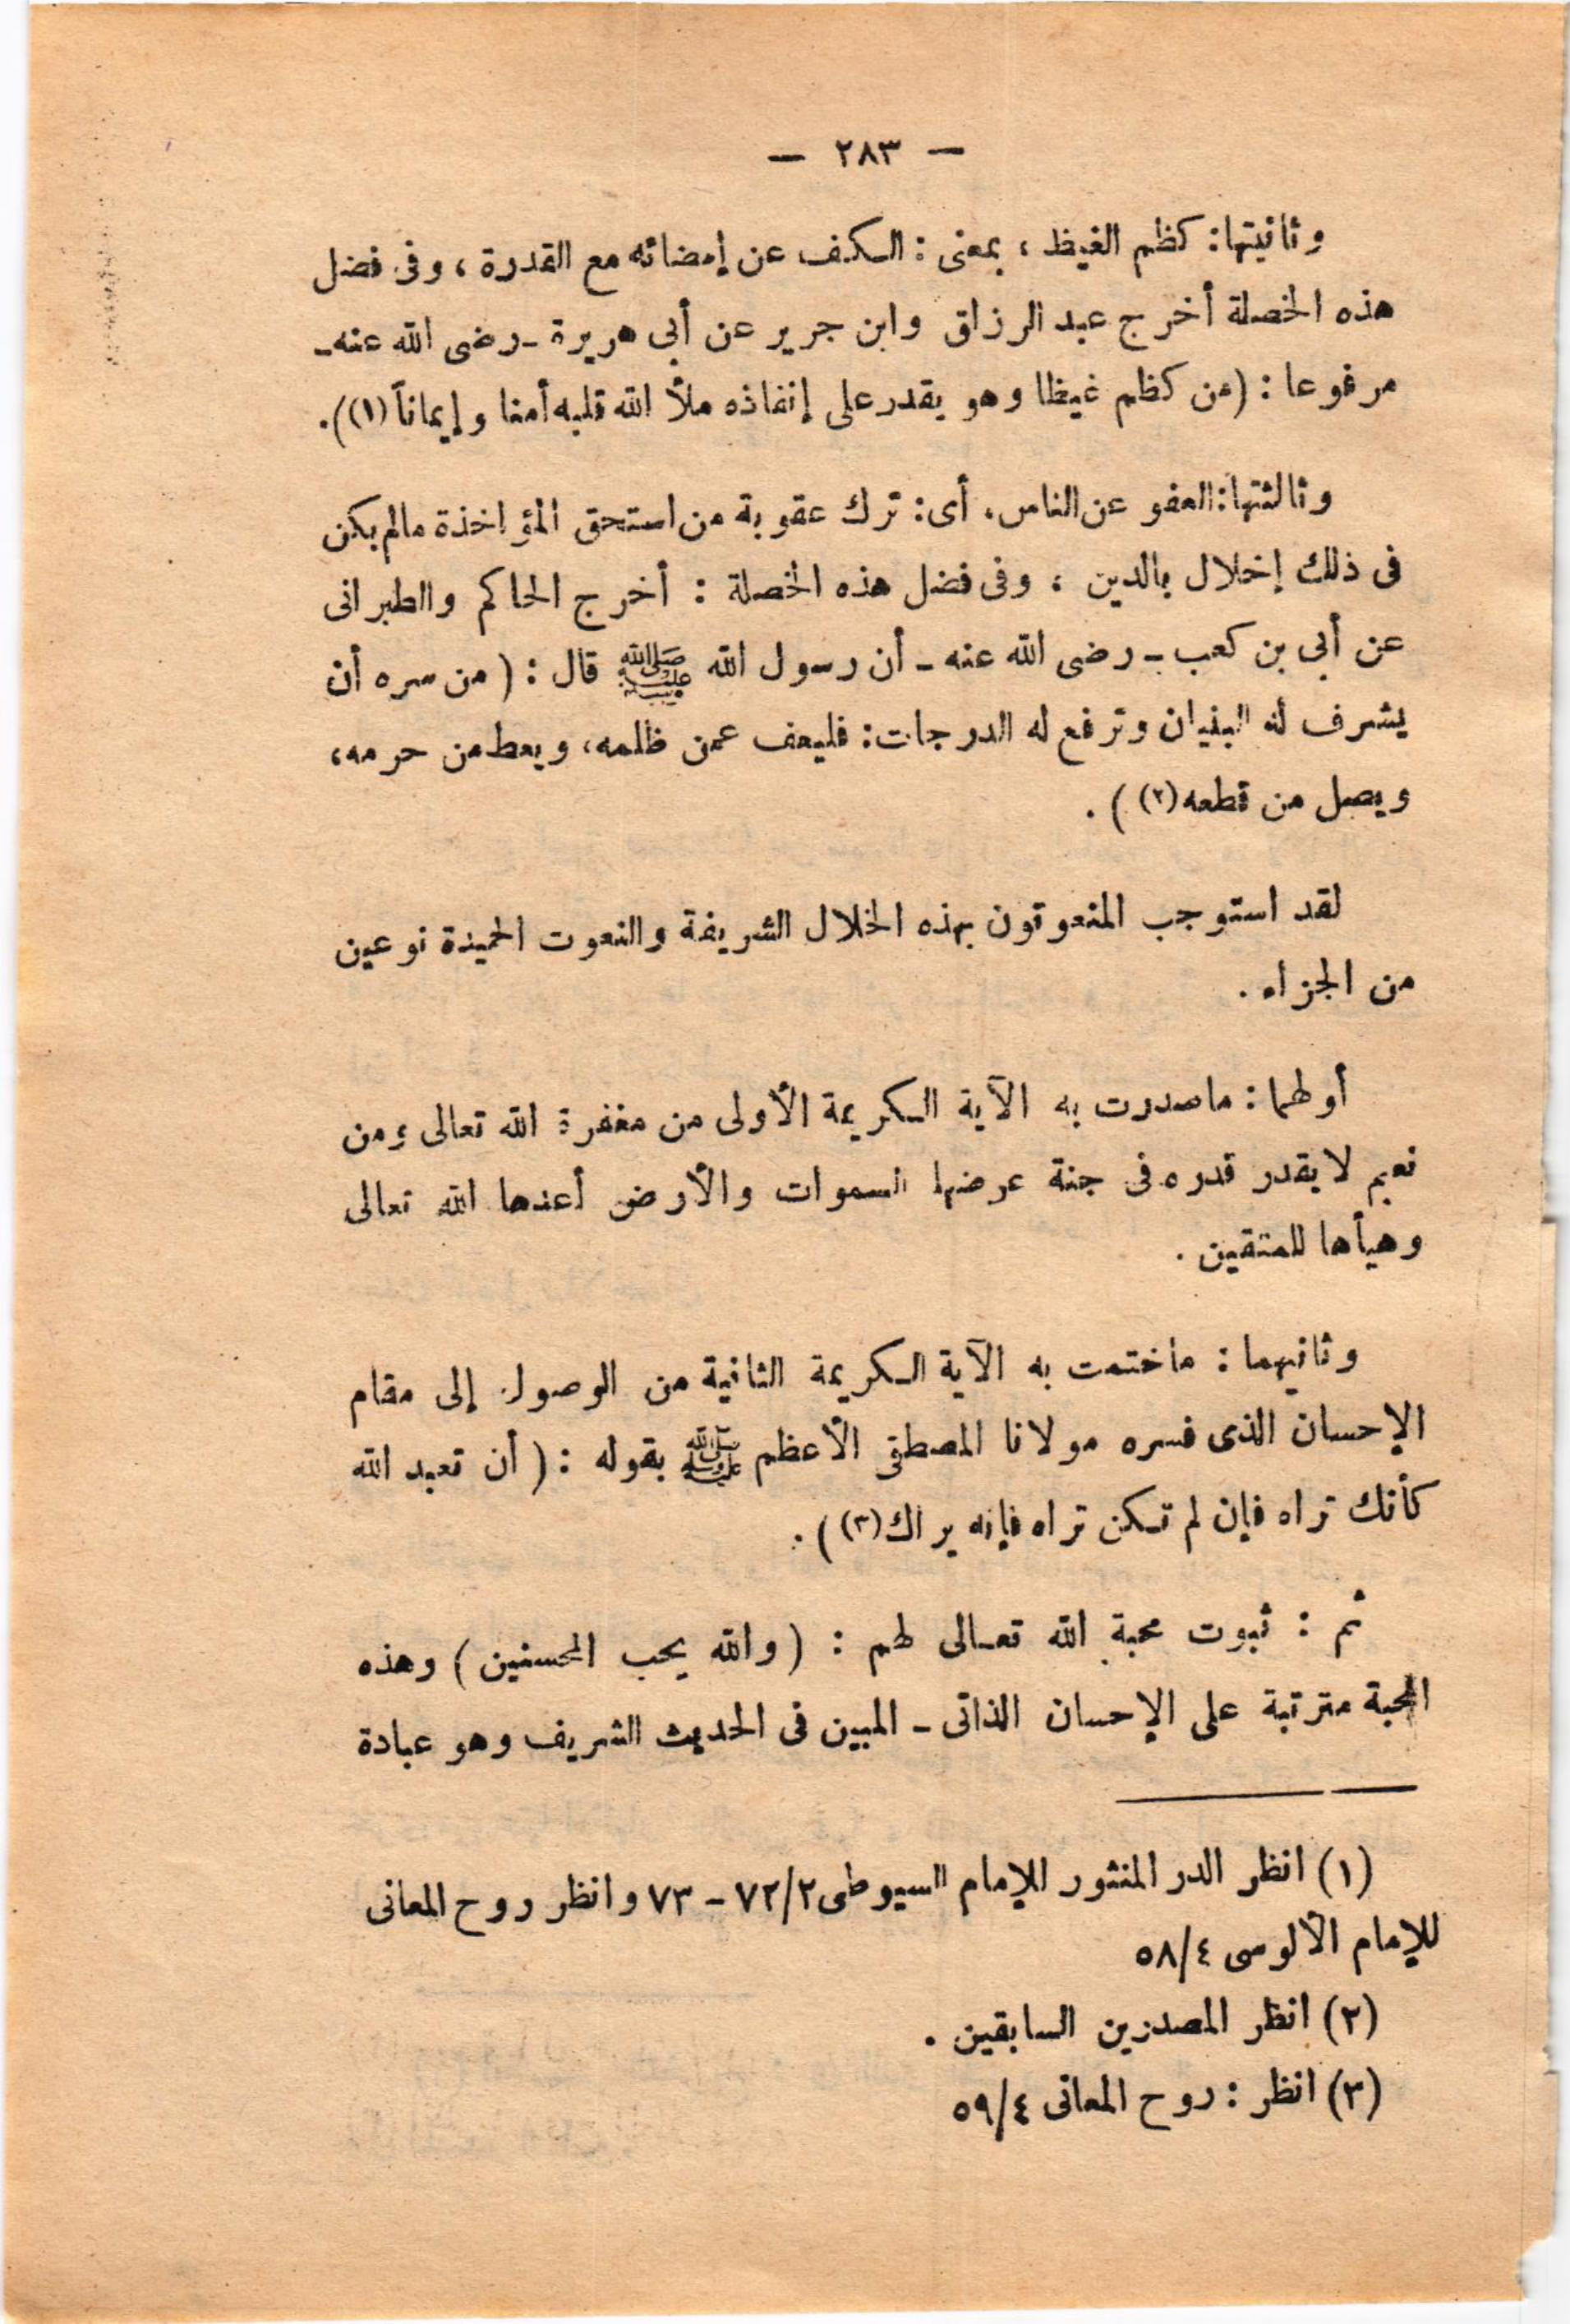 — ٢٨٣ —
وثانيتها: كظم الغيظ ، بمعنى : الكف عن إمضائه مع القدرة ، وفى فضل
هذه الخصلة أخرج عبد الرزاق وابن جرير عن أبى هريرة - رضى الله عنه -
مرفوعا : (من كظم غيظا وهو يقدر على إنفاذه ملأ الله قلبه أمنا وإيماناً (١)).
وثالثتها: العفو عن الناس، أى: ترك عقوبة من استحق المؤاخذة مالم يكن
فى ذلك إخلال بالدين ، وفى فضل هذه الخصلة : أخرج الحاكم والطبرانى
عن أبى بن كعب - رضى الله عنه - أن رسول الله ﷺ قال : ( من سره أن
يشرف له البنيان وترفع له الدرجات: فليعف عمن ظلمه، ويعط من حرمه،
ويصل من قطعه (٢) ) .
لقد استوجب المنعوتون بهذه الخلال الشريفة والنعوت الحميدة نوعين
من الجزاء .
أولهما : ماصدرت به الآية الكريمة الأولى من مغفرة الله تعالى ومن
نعيم لا يقدر قدره فى جنة عرضها السموات والأرض أعدها الله تعالى
وهيأها للمتقين .
وثانيهما : ماختمت به الآية الكريمة الثانية من الوصول إلى مقام
الإحسان الذى فسره مولانا المصطفى الأعظم ﷺ بقوله : ( أن تعبد الله
كأنك تراه فإن لم تكن تراه فإنه يراك (٣) ) .
ثم : ثبوت محبة الله تعالى لهم : ( والله يحب المحسنين ) وهذه
المحبة مترتبة على الإحسان الذاتى - المبين فى الحديث الشريف وهو عبادة
(١) انظر الدر المنثور للإمام السيوطى ٧٢/٢ - ٧٣ وانظر روح المعانى
للإمام الآلوسى ٥٨/٤
(٢) انظر المصدرين السابقين .
(٣) انظر : روح المعانى ٥٩/٤